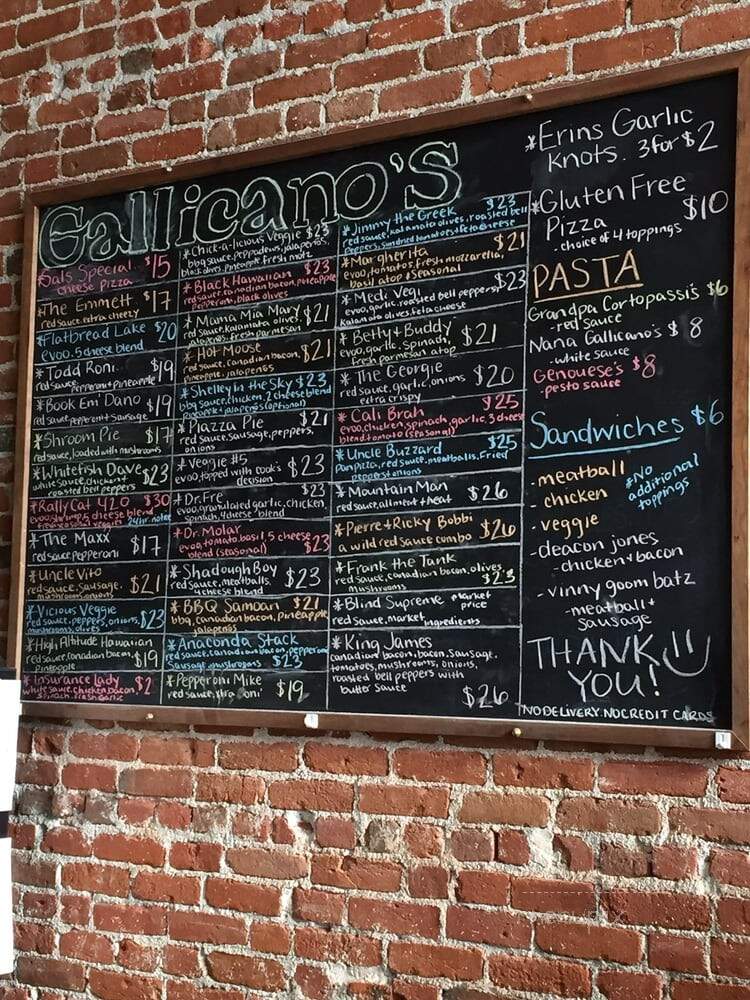 Gallicano's
*Sals Special $15
cheese pizza
*The Emmett $17
red sauce, extra cheezy
*Flatbread Lake $20
evoo, 5 cheese blend
*Todd Roni $19
red sauce, pepperoni + pineapple
*Book Em' Dano $19
red sauce, pepperoni + sausage
*Shroom Pie $17
red sauce, loaded with mushrooms
*Whitefish Dave $23
white sauce, chicken +
roasted bell peppers
*Rally Cat 420 $30
evoo, shrimp, 5 cheese blend
fresh seasonal veggies 24hr. notice
*The Maxx $17
red sauce, pepperoni
*Uncle Vito $21
red sauce, sausage,
mushrooms, onions
*Vicious Veggie $23
red sauce, peppers, onions,
mushrooms, olives
*High Altitude Hawaiian
red sauce, canadian bacon, $19
pineapple
*Insurance Lady $2
white sauce, chicken, bacon,
spinach, fresh garlic
*Chick-a-licious Veggie $23
bbq sauce, peppadews, jalapeños,
black olives, pineapple, fresh motz
*Black Hawaiian $23
red sauce, canadian bacon, pineapple
pepperoni, black olives
*Mama Mia Mary $21
red sauce, kalamata olives,
jalapeños, fresh parmesan
*Hot Moose $21
red sauce, canadian bacon,
pineapple, jalapeños
*Shelley in the Sky $23
bbq sauce, chicken, 2 cheese blend
pineapple + jalapeños (optional)
*Piazza Pie $21
red sauce, sausage, peppers,
onions
*Veggie #5 $23
evoo, topped with cook's
decision
*Dr. Fre $23
evoo, granulated garlic, chicken,
spinach, 4 cheese blend
*Dr. Molar
evoo, tomato, basil, 5 cheese
blend (seasonal) $23
*Shadough Boy $23
red sauce, meatballs,
4 cheese blend
*BBQ Samoan $21
bbq, canadian bacon, pineapple
jalapeños
*Anaconda Stack
red sauce, canadian bacon, pepperoni
sausage, mushrooms $23
*Pepperoni Mike $19
red sauce, xtra 'roni'
*Jimmy the Greek $23
red sauce, kalamata olives, roasted bell
peppers, sundried tomatoes + feta cheese
*Margherita $21
evoo, tomatoes, fresh mozzarella,
basil atop *Seasonal
*Medi Vegi $23
evoo, garlic, roasted bell peppers,
kalamata olives, feta cheese
*Betty + Buddy $21
evoo, garlic, spinach,
fresh parmesan atop
*The Georgie $20
red sauce, garlic, onions
extra crispy
*Cali Brah $25
evoo, chicken, spinach, garlic, 3 cheese
blend, tomato (seasonal)
*Uncle Buzzard $25
pan pizza, red sauce, meatballs, fried
peppers + onions
*Mountain Man $26
red sauce, all meat + heat
*Pierre + Ricky Bobbi $26
a wild red sauce combo
*Frank the Tank
red sauce, canadian bacon, olives,
mushrooms $23
*Blind Supreme market
price
red sauce, market ingredients
*King James
canadian bacon, bacon, sausage,
tomatoes, mushrooms, onions,
roasted bell peppers with
butter sauce
$26
*Erins Garlic
Knots. 3 for $2
*Gluten Free
Pizza $10
-choice of 4 toppings
PASTA
Grandpa Cortopassi's $6
-red sauce
Nana Gallicano's $8
-white sauce
Genouese's $8
-pesto sauce
Sandwiches $6
-meatball
-chicken
-veggie
*No
additional
toppings
-deacon jones
-chicken + bacon
-vinny goom batz
-meatball +
sausage
THANK
YOU!
*NO DELIVERY. NO CREDIT CARDS